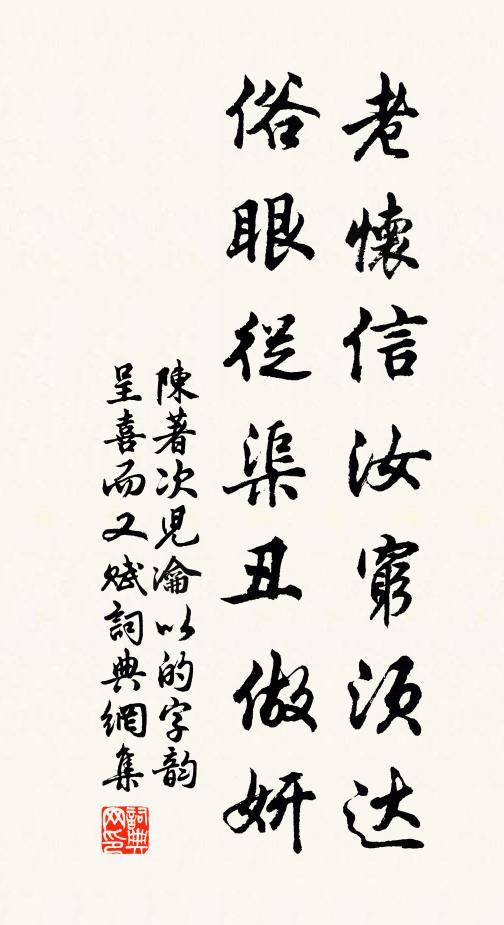 老懷信汝窮須达
俗眼從渠丑做妍
陳著次児瀹以的字韵
呈喜而又賦詞典網集
詞典网印